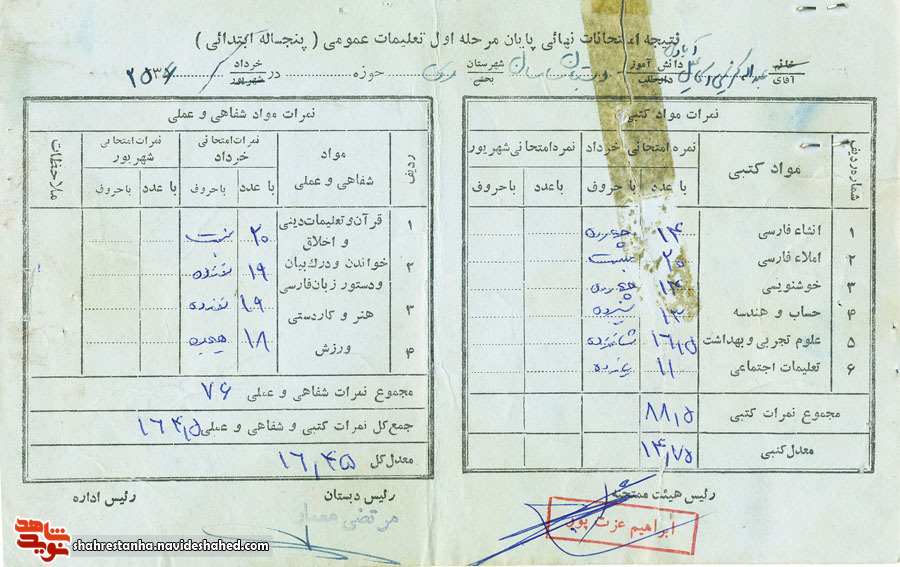 نتیجه امتحانات نهائی پایان مرحله اول تعلیمات عمومی ( پنجساله ابتدائی )
خانم آقای دانش آموز داوطلب شهرستان بخش حوزه در خرداد شهریور ۲۵۳۶
نمرات مواد کتبی
شماره ردیف
مواد کتبی
نمره امتحانی خرداد
نمره امتحانی شهریور
با عدد
با حروف
با عدد
با حروف
۱ انشاء فارسی ۱۴ چهارده
۲ املاء فارسی ۲۰ بیست
۳ خوشنویسی ۱۴ چهارده
۴ حساب و هندسه ۱۳ سیزده
۵ علوم تجربی و بهداشت ۱۶٫۵ شانزده
۶ تعلیمات اجتماعی ۱۱ یازده
مجموع نمرات کتبی ۸۸٫۵
معدل کتبی ۱۴٫۷۵
رئیس هیئت ممتحنه
ابراهیم عزت پور
نمرات مواد شفاهی و عملی
ردیف
مواد شفاهی و عملی
نمرات امتحانی خرداد
نمرات امتحانی شهریور
ملاحظات
با عدد
با حروف
با عدد
با حروف
۱ قرآن و تعلیمات دینی و اخلاق ۲۰ بیست
۲ خواندن و درك بیان و دستور زبان فارسی ۱۹ نوزده
۳ هنر و کاردستی ۱۹ نوزده
۴ ورزش ۱۸ هیجده
مجموع نمرات شفاهی و عملی ۷۶
جمع کل نمرات کتبی و شفاهی و عملی ۱۶۴٫۵
معدل کل ۱۶٫۴۵
رئیس دبستان
رئیس اداره
مرتضی
نوید شاهد
shahrestanha.navideshahed.com